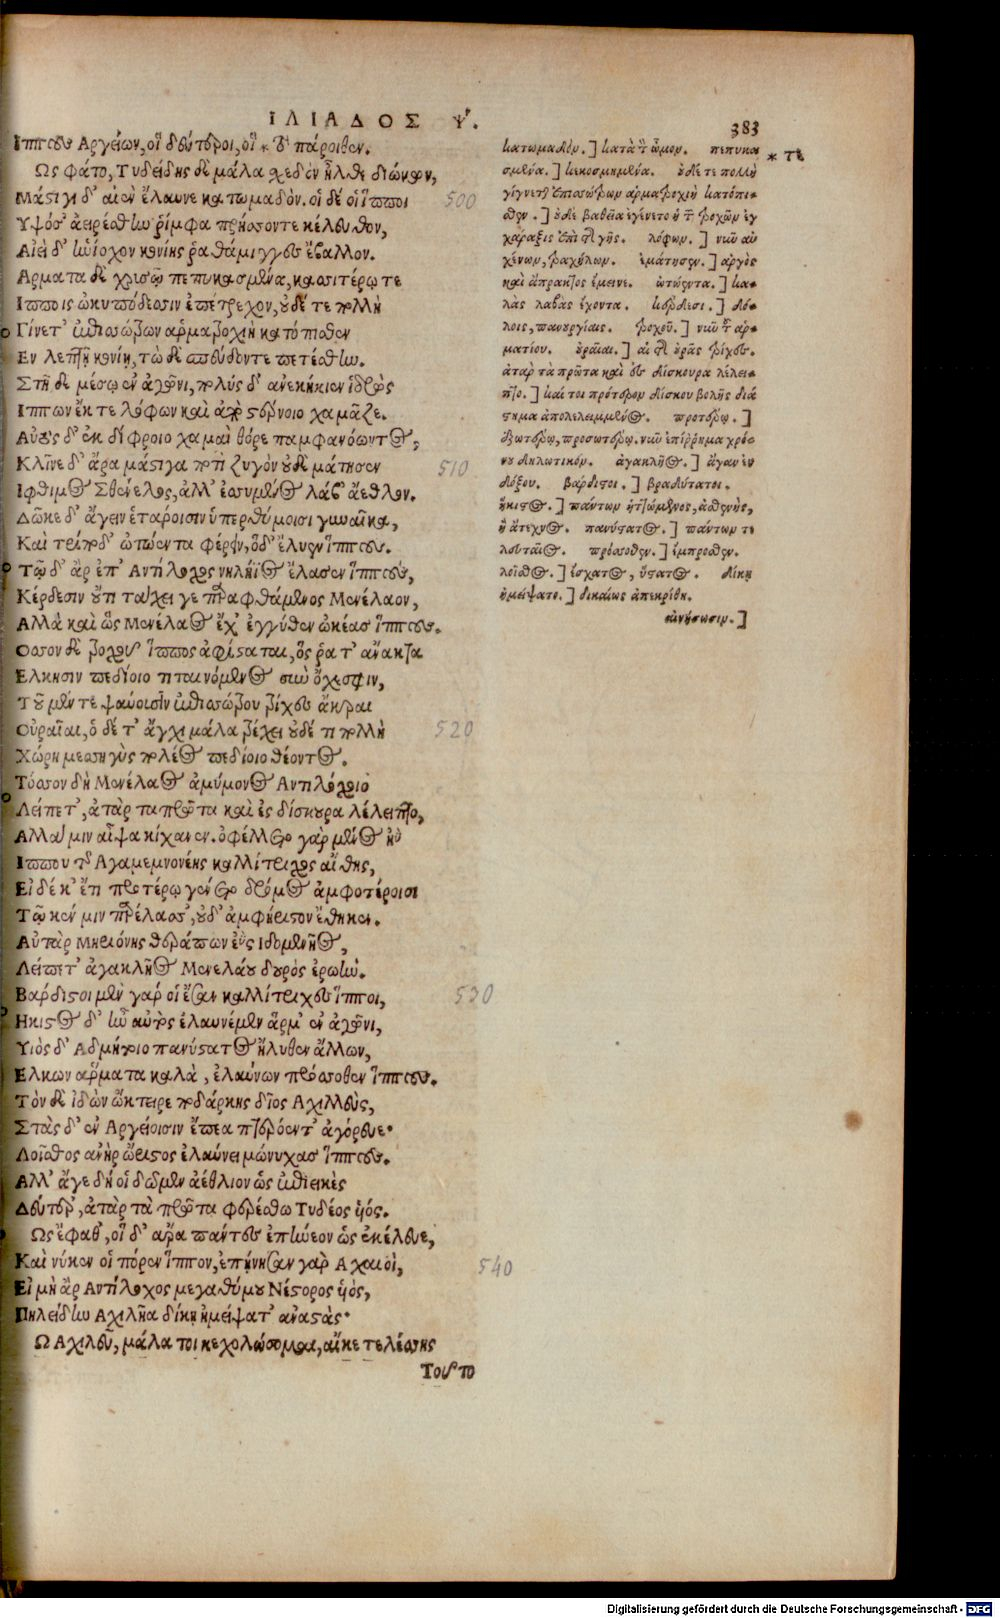 ΙΛΙΑΔΟΣ Ψ.
383
Ἵππους Ἀργείων, οἳ δεύτεροι, οἳ * δὲ πάροιθεν.
Ὣς φάτο, Τυδείδης δὲ μάλα σχεδὸν ἦλθε διώκων,
Μάστιγι δ' αἰὲν ἔλαυνε κατωμαδόν. οἱ δέ οἱ ἵπποι 500
Ὑψόσ' ἀειρέσθην ῥίμφα πρήσσοντε κέλευθον,
Αἰεὶ δ' ἡνίοχον κονίης ῥαθάμιγγες ἔβαλλον.
Ἅρματα δὲ χρυσῷ πεπυκασμένα, κασσιτέρῳ τε
Ἵπποις ὠκυπόδεσσιν ἐπέτρεχον, οὐδέ τε πολλὴ
Γίνετ' ἐπισσώτρων ἁρματροχιὴ κατόπισθεν
Ἐν λεπτῇ κονίῃ, τὼ δὲ σπεύδοντε πετέσθην.
Στῆ δὲ μέσῳ ἐν ἀγῶνι, πολὺς δ' ἀνεκήκιεν ἱδρὼς
Ἵππων ἔκ τε λόφων καὶ ἀπὸ στέρνοιο χαμᾶζε.
Αὐτὸς δ' ἐκ δίφροιο χαμαὶ θόρε παμφανόωντος,
Κλῖνε δ' ἄρα μάστιγα ποτὶ ζυγὸν οὐδὲ μάτησεν 510
Ἴφθιμος Σθένελος, ἀλλ' ἐσσυμένως λάβ' ἄεθλον.
Δῶκε δ' ἄγειν ἑτάροισιν ὑπερθύμοισι γυναῖκα,
Καὶ τρίποδ' ὠτώεντα φέρειν, ὅδ' ἔλυεν ἵππους.
Τῷ δ' ἄρ ἐπ' Ἀντίλοχος νηλήϊος ἔλασεν ἵππους,
Κέρδεσιν οὔτι τάχει γε παραφθάμενος Μενέλαον,
Ἀλλὰ καὶ ὣς Μενέλαος ἔχ' ἐγγύθεν ὠκέας ἵππους.
Ὅσσον δὲ τροχοῦ ἵππος ἀφίσταται, ὅς ῥά τ' ἄνακτα
Ἕλκησιν πεδίοιο τιταινόμενος σὺν ὄχεσφιν,
Τοῦ μέν τε ψαύουσιν ἐπισσώτρου τρίχες ἄκραι
Οὐραῖαι, ὁ δέ τ' ἄγχι μάλα τρέχει οὐδέ τι πολλὴ 520
Χώρη μεσσηγὺς πολέος πεδίοιο θέοντος.
Τόσσον δὴ Μενέλαος ἀμύμονος Ἀντιλόχοιο
Λείπετ', ἀτὰρ τὰ πρῶτα καὶ ἐς δίσκουρα λέλειπτο,
Ἀλλά μιν αἶψα κίχανεν. ὀφέλλετο γὰρ μένος ἠῢ
Ἵππου τῆς Ἀγαμεμνονέης καλλίτριχος αἴθης,
Εἰ δέ κ' ἔτι προτέρῳ γένετο δρόμος ἀμφοτέροισι
Τῷ κέν μιν παρέλασσ', οὐδ' ἀμφήριστον ἔθηκεν.
Αὐτὰρ Μηριόνης θεράπων ἐῢς Ἰδομενῆος,
Λείπετ' ἀγακλῆος Μενελάου δουρὸς ἐρωήν.
Βάρδιστοι μὲν γάρ οἱ ἔσαν καλλίτριχες ἵπποι, 530
Ἥκιστος δ' ἦν αὐτὸς ἐλαυνέμεν ἅρμ' ἐν ἀγῶνι,
Υἱὸς δ' Ἀδμήτοιο πανύστατος ἤλυθεν ἄλλων,
Ἕλκων ἅρματα καλὰ, ἐλαύνων πρόσσοθεν ἵππους.
Τὸν δὲ ἰδὼν ᾤκτειρε ποδάρκης δῖος Ἀχιλλεὺς,
Στὰς δ' ἐν Ἀργείοισιν ἔπεα πτερόεντ' ἀγόρευε·
Λοῖσθος ἀνὴρ ὤριστος ἐλαύνει μώνυχας ἵππους.
Ἀλλ' ἄγε δή οἱ δῶμεν ἀέθλιον ὡς ἐπιεικὲς
Δεύτερ', ἀτὰρ τὰ πρῶτα φερέσθω Τυδέος υἱός.
Ὣς ἔφαθ', οἳ δ' ἄρα πάντες ἐπῄνεον ὡς ἐκέλευε,
Καὶ νύ κέν οἱ πόρεν ἵππον, ἐπῄνησαν γὰρ Ἀχαιοὶ, 540
Εἰ μὴ ἄρ Ἀντίλοχος μεγαθύμου Νέστορος υἱὸς,
Πηλείδην Ἀχιλῆα δίκῃ ἠμείψατ' ἀναστάς·
Ὦ Ἀχιλεῦ, μάλα τοι κεχολώσομαι, αἴκε τελέσσῃς
Τοῦτο
κατωμαδόν.] κατὰ τῶν ὤμων. πεπυκα * τε
σμένα.] κεκοσμημένα. οὐδέ τε πολλὴ
γίγνετο ἐπισσώτρων ἁρματροχιὴ κατόπι-
σθεν.] οὐδὲ βαθεῖα ἐγένετο ἡ τῶν τροχῶν ἐγ
χάραξις ἐπὶ τῆς γῆς. λόφων.] νῦν αὐ
χένων, τραχήλων. ἐμάτησεν.] ἀργὸς
καὶ ἄπρακτος ἔμεινε. ὠτώεντα.] κα-
λὰς λαβὰς ἔχοντα. κέρδεσι.] δό-
λοις, πανουργίαις. τροχοῦ.] νῦν τοῦ ἁρ-
ματίου. οὐραῖαι.] αἱ τῆς οὐρᾶς τρίχες.
ἀτὰρ τὰ πρῶτα καὶ ἐς δίσκουρα λέλει-
πτο.] καί τοι πρότερον δίσκου βολῆς διά
στημα ἀπολελειμμένος. προτέρω.]
ἐξωτέρω, προσωτέρω. νῦν ἐπίρρημα χρό-
νου δηλωτικόν. ἀγακλῆος.] ἄγαν ἐν
δόξου. βάρδιστοι.] βραδύτατοι.
ἥκιστος.] πάντων ἡττώμενος, ἀσθενὴς,
ἢ ἄτεχνος. πανύστατος.] πάντων τε
λευταῖος. πρόσσοθεν.] ἔμπροσθεν.
λοῖσθος.] ἔσχατος, ὕστατος. δίκῃ
ἠμείψατο.] δικαίως ἀπεκρίθη.
αἰνήσωσιν.]
Digitalisierung gefördert durch die Deutsche Forschungsgemeinschaft - DFG